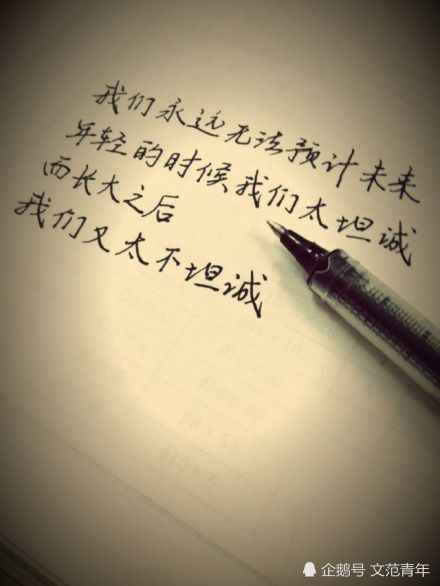 我们永远无法预计未来
年轻的时候我们太坦诚
而长大之后
我们又太不坦诚
企鹅号 文范青年